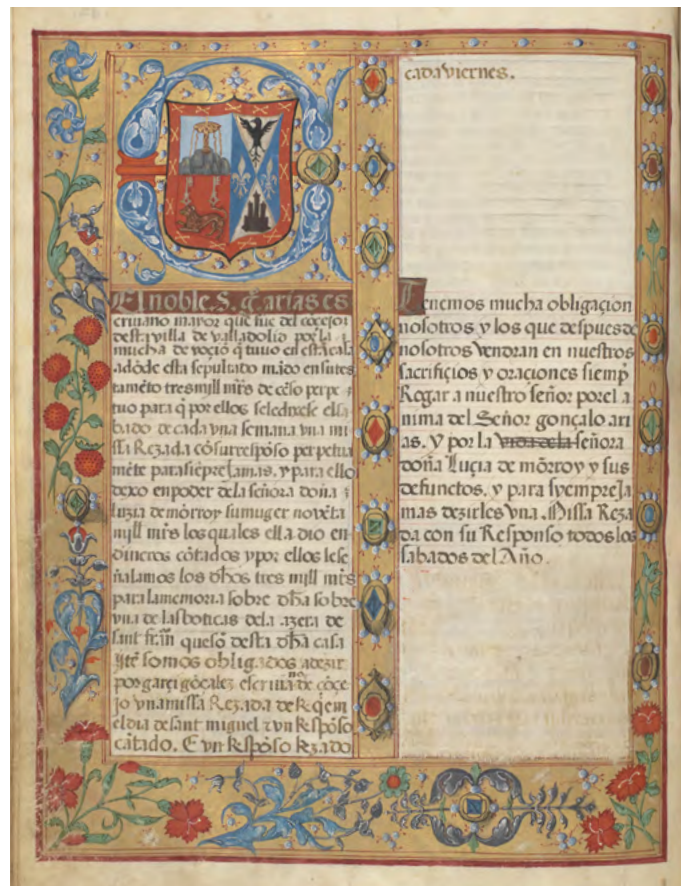 El noble. S. gº arias es
criuano mayor que fue del cōcejo
desta villa de valladolid por la
mucha deuoçiō q̄ tuuo en esta cala
adōde esta sepultado mādo en su tes
tamēto tres mill mr̄s de cēso perpe
tuo para q̄ por ellos se le dixese el sa
bado de cada vna semana vna mi
ssa Rezada cō su respōso perpetua
mēte para siēpre jamas. y para ello
dexo en poder de la señora doña
luzia de mōrroy su muger nouēta
mill mr̄s los quales ella dio en
dineros cōtados y por ellos le se
ñalamos los dh̄os tres mill mr̄s
para la memoria sobre dh̄a sobre
vna de las boticas dela azera de
sant frāñ que sō desta dh̄a casa
ytē somos obligados a dezir
por garçi gōçalez escriuano de cōce
jo vna missa Rezada de Reqem
el dia de sant miguel τ vn Respōso
cātado. E vn Respōso Rezado
cada viernes.
Tenemos mucha obligaçion
nosotros y los que despues de
nosotros vendran en nuestros
sacrifiçios y oraçiones siemp
Rogar a nuestro señor por el a
nima del Señor gonçalo ari
as. y por la vida de la señora
doña Luçia de mōrroy y sus
defunctos. y para syempre Ja
mas dezirles vna. Missa Reza
da con su Responso todos los
sabados del Año.